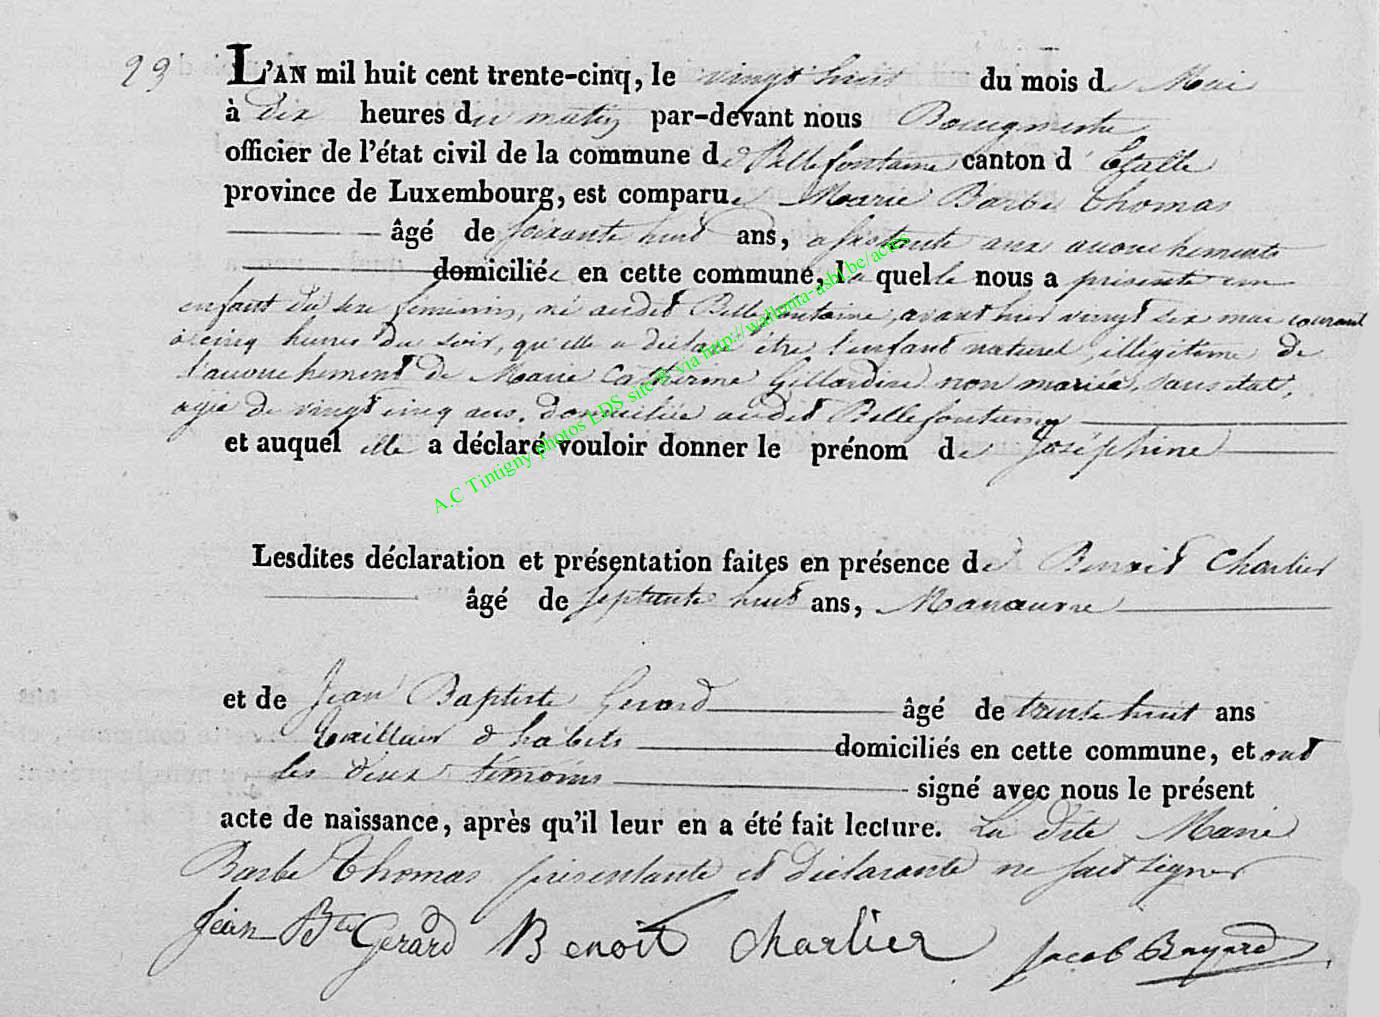 23
L'AN mil huit cent trente-cinq, le vingt huit du mois de Mai
à dix heures du matin par-devant nous Bourgmestre
officier de l'état civil de la commune de Bellefontaine canton d'Etalle
province de Luxembourg, est comparue Marie Barbe Thomas
âgé de soixante huit ans, assistante aux accouchements
domiciliée en cette commune, la quelle nous a présenté un
enfant du sexe féminin, né audit Bellefontaine, avant hier vingt six mai courant
à cinq heures du soir, qu'elle a déclaré être l'enfant naturel, illégitime de
l'accouchement de Marie Catherine Gillardin non mariée, sans état,
agée de vingt cinq ans, domiciliée audit Bellefontaine
et auquel elle a déclaré vouloir donner le prénom de Joséphine
A.C Tintigny photos EDS site via http://wallonia-asbl.be/actes
Lesdites déclaration et présentation faites en présence de Benoit Charlier
âgé de septante huit ans, Manœuvre
et de Jean Baptiste Gerard âgé de trente huit ans
tailleur d'habits domiciliés en cette commune, et ont
les deux témoins signé avec nous le présent
acte de naissance, après qu'il leur en a été fait lecture. La dite Marie
Barbe Thomas présentante et déclarante ne sait signer
Jean Bte Gerard Benoit Charlier Jacob Bayard